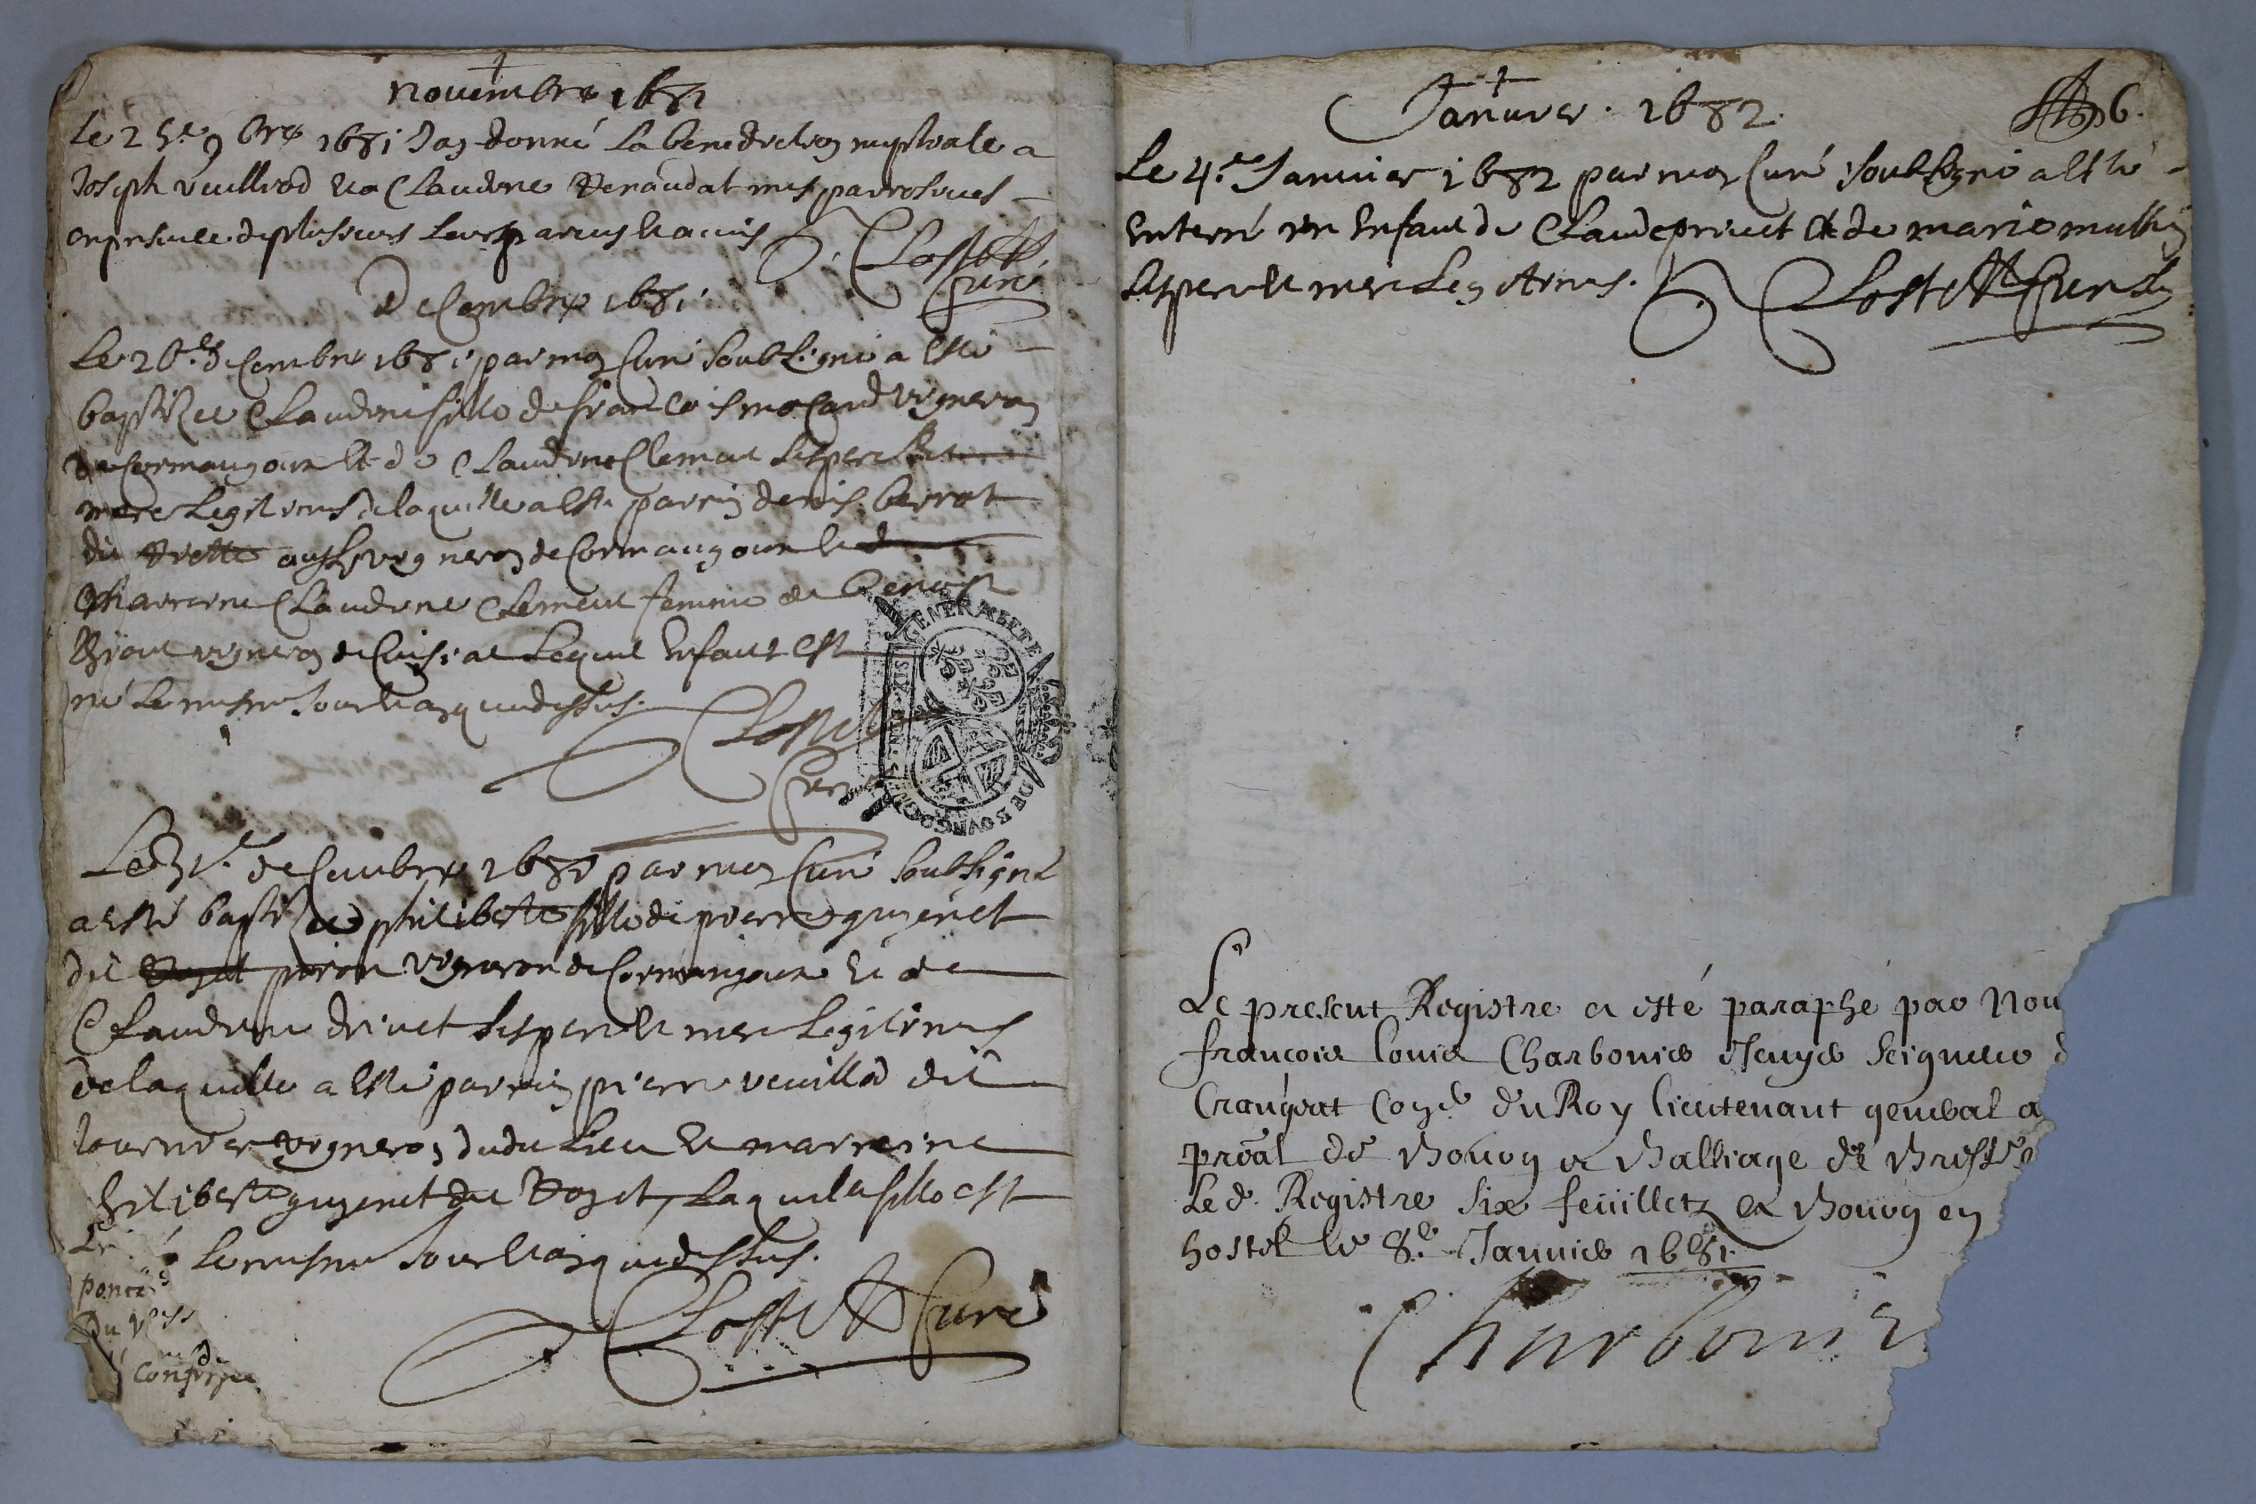 novembre 1681
Le 25.e 9bre 1681 Jay donné La benediction nuptiale a
Joseph veuillod et a Claudine Renaudat mes parrossiens
en presence de plusieurs Leurs parens et amis
Clostet
Curé
Decembre 1681
Le 26.e decembre 1681 par moy Curé soubsigné a esté
baptizee Claudine fille de francois mocard vigneron
de Cormangoux et de Claudine Clement ses pere et
mere Legitimes de laquelle a esté parrin denis berrot
dit aussy vigneron de Cormangoux et
Marrenne Claudine Clement femme de benoist
vigneron de Cuisiat Lequel enfant est
né Le mesme Jour et an que dessus.
Clostet
Curé
GENERALITE
DE BOVRGOGNE
Le 31.e decembre 1681 par moy Curé soubsigné
a esté baptizee philiberte fille de pierre guyenet
dit vigneron de Cormangoux et de
Claudine drivet ses pere et mere Legitimes
de laquelle a esté parrin pierre veuillod dit
tournier vigneron dudit Lieu et marreine
philiberte guyenet dit Laquelle fille est
Le mesme Jour et an que dessus.
Clostet Curé
Janvier 1682
6.
Le 4.e Janvier 1682 par moy Curé soubsigné a esté
enterré un enfant de Claude privet et de marie
ses pere et mere Legitimes.
Clostet Curé
Le present Registre a esté paraphé par Nou
françois Louis Charbonier Escuyer Seigneur d
Crangeat Con.er du Roy lieutenant general a
preāl de Bourg et Balliage de Bresse
Le d. Registre six feüilletz a Bourg en
hostel le 8.e Janvier 1681.
Charbonier